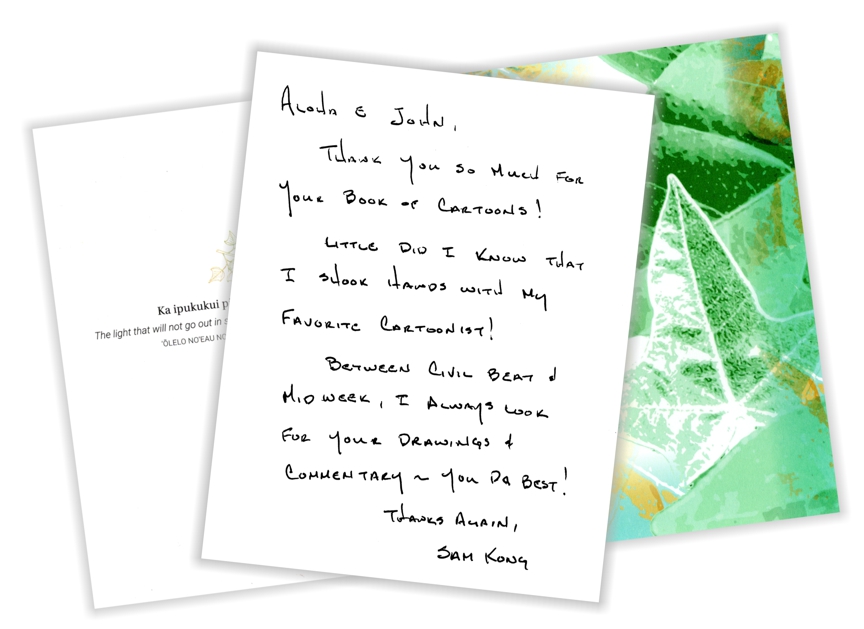 Ka ipukukui p
The light that will not go out in s
ʻŌLELO NOʻEAU NO
ALOHA E JOHN,
THANK YOU SO MUCH FOR
YOUR BOOK OF CARTOONS!
LITTLE DID I KNOW THAT
I SHOOK HANDS WITH MY
FAVORITE CARTOONIST!
BETWEEN CIVIL BEAT &
MIDWEEK, I ALWAYS LOOK
FOR YOUR DRAWINGS &
COMMENTARY ~ YOU DA BEST!
THANKS AGAIN,
SAM KONG